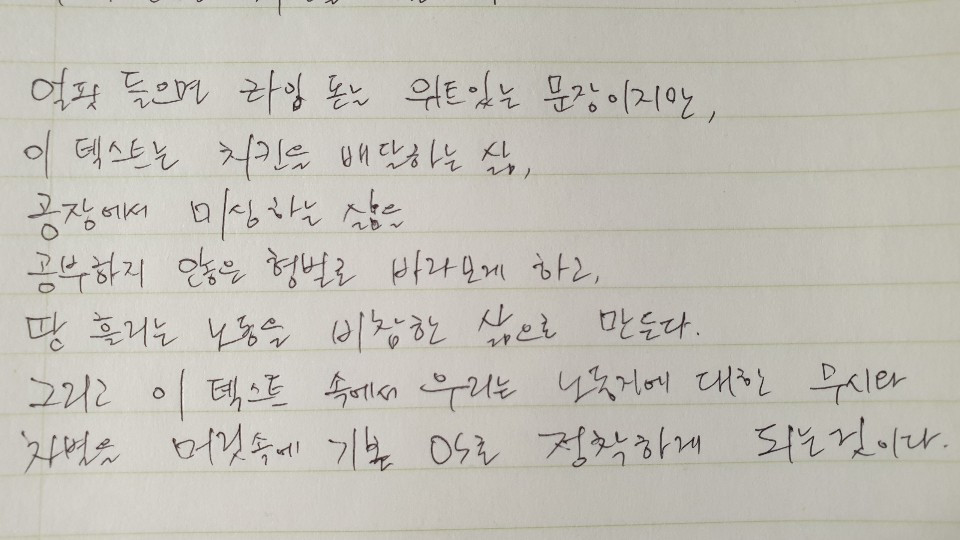 얼핏 들으면 라임 돋는 위트있는 문장이지만,
이 텍스트는 치킨을 배달하는 삶,
공장에서 미싱하는 삶을
공부하지 않은 형벌로 바라보게 하고,
땀 흘리는 노동을 비참한 삶으로 만든다.
그리고 이 텍스트 속에서 우리는 노동자에 대한 무시와
차별을 머릿속에 기본 OS로 정착하게 되는것이다.